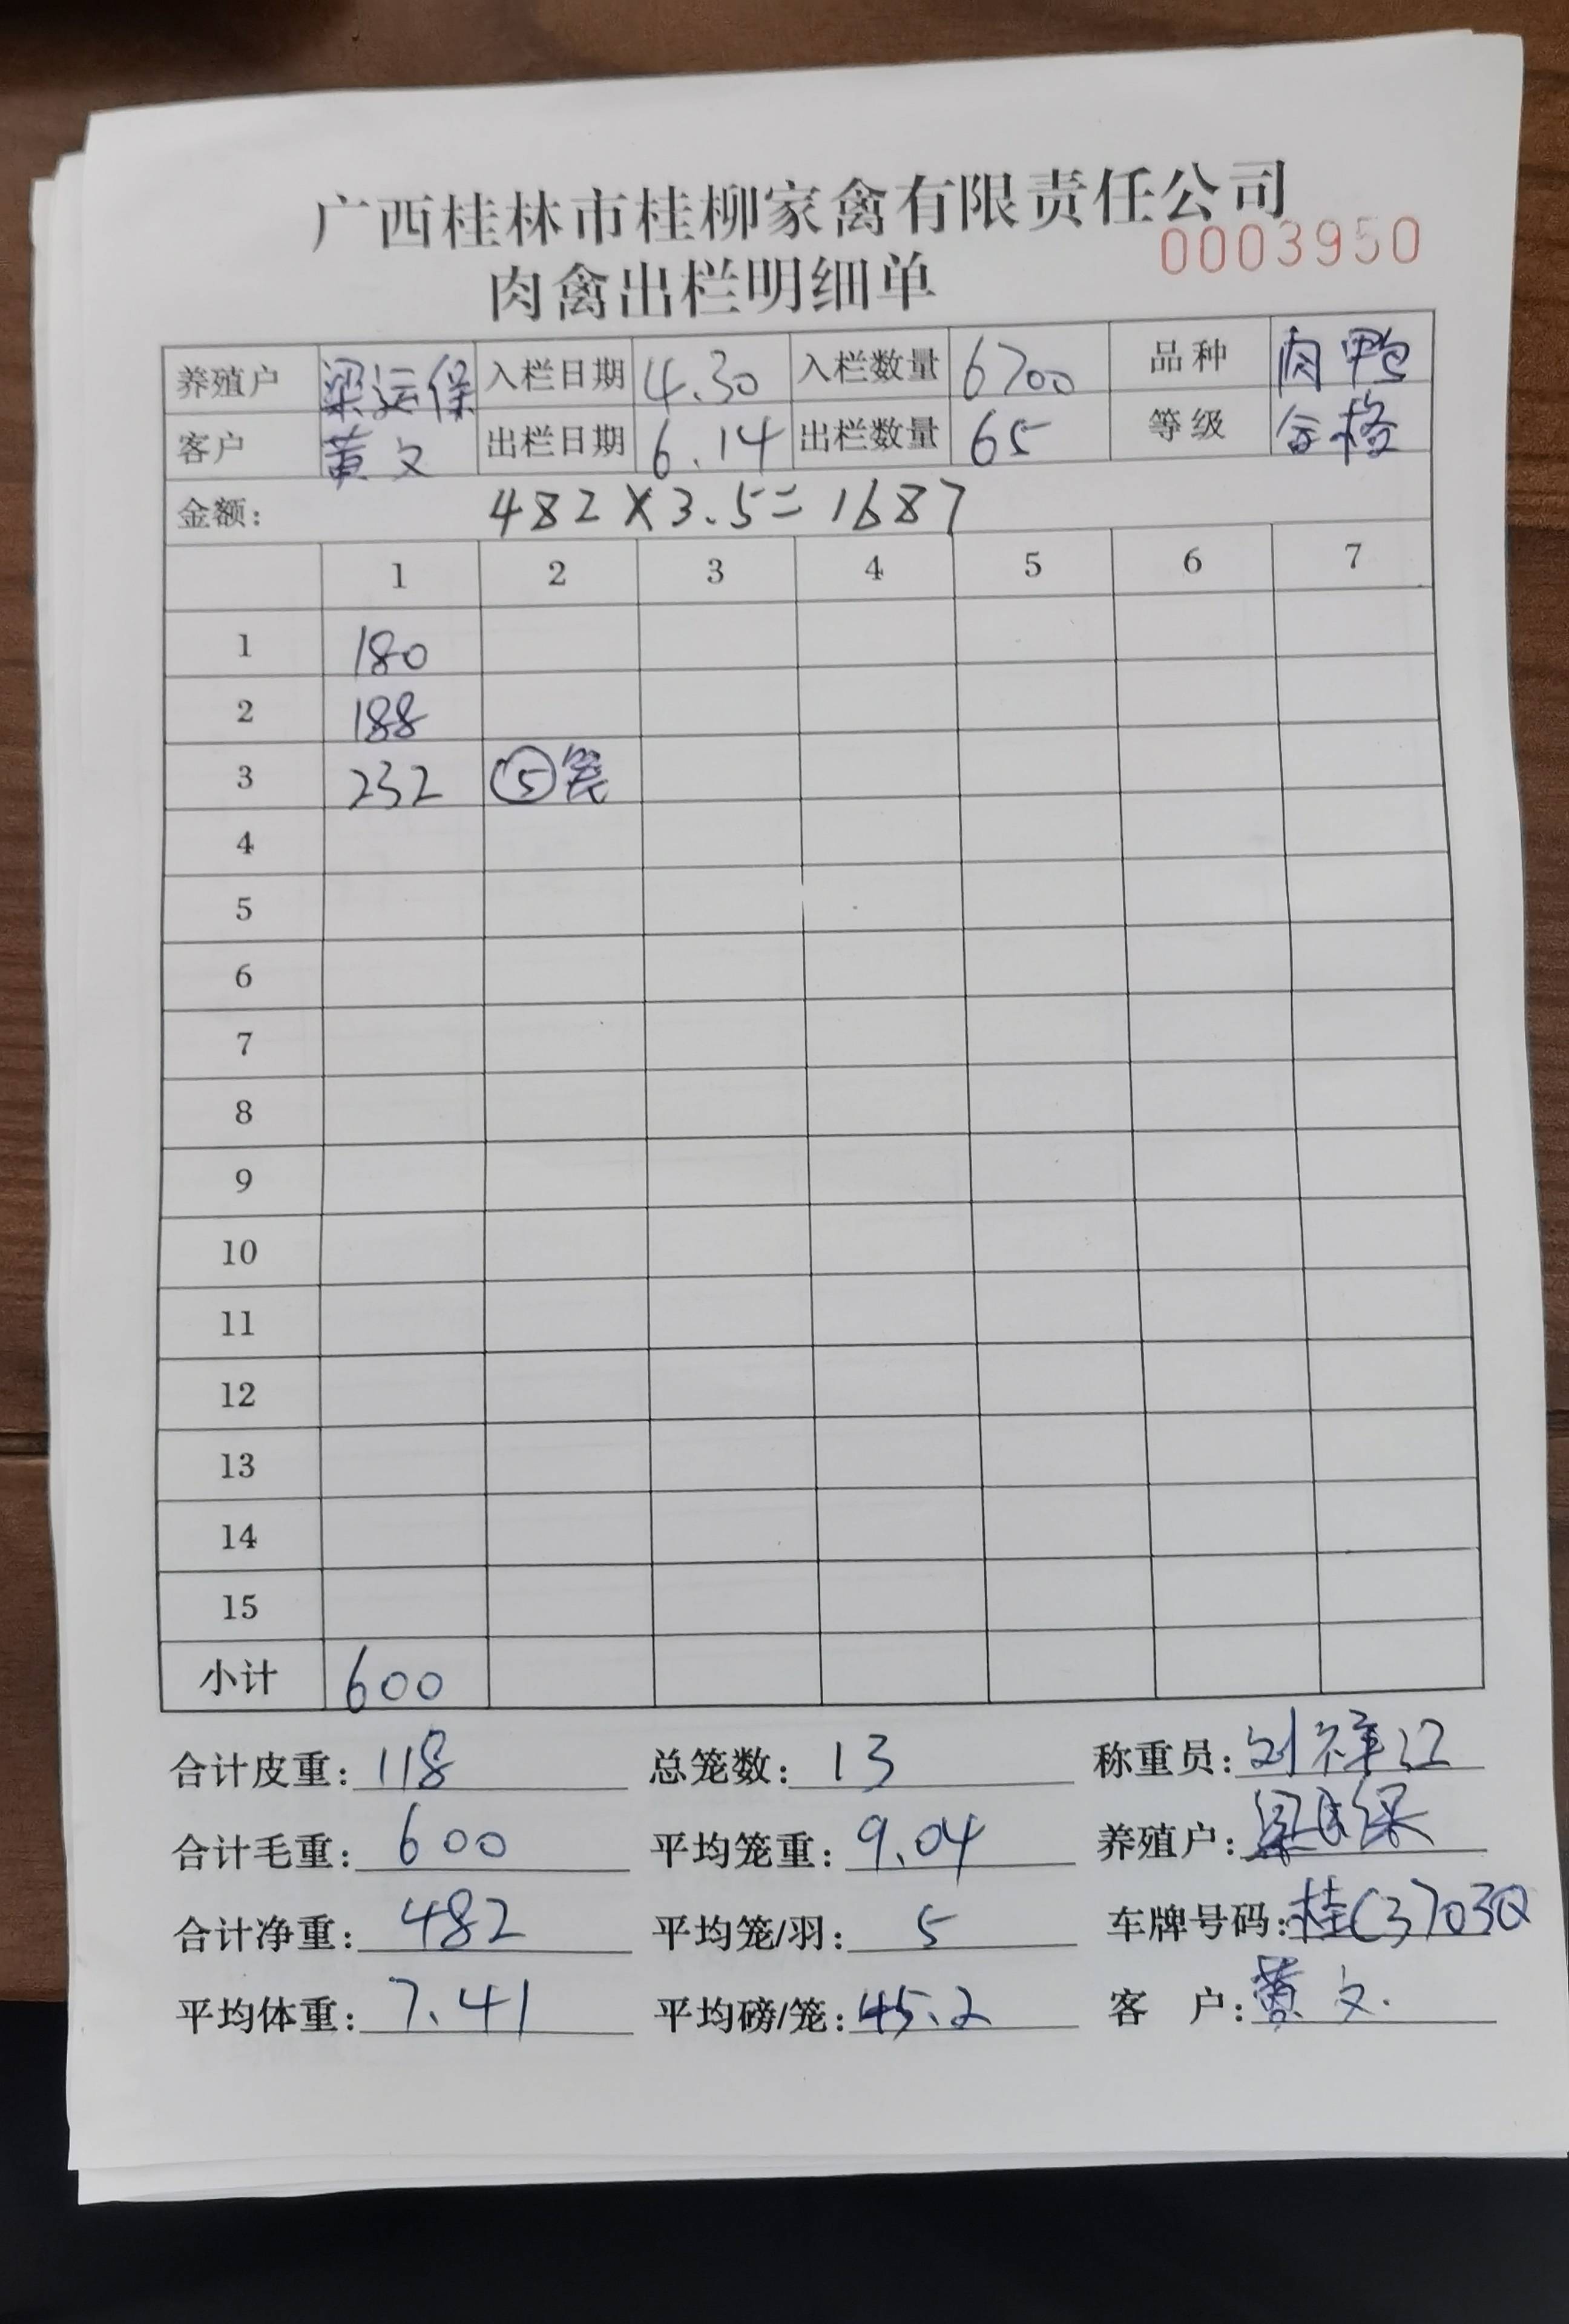 广西桂林市桂柳家禽有限责任公司
0003950
肉禽出栏明细单
养殖户 梁运保 入栏日期 4.30 入栏数量 6700 品种 肉鸭
客户 黄文 出栏日期 6.14 出栏数量 65 等级 合格
金额: 482×3.5=1687
1 2 3 4 5 6 7
1 180
2 188
3 232 ⑤笼
4
5
6
7
8
9
10
11
12
13
14
15
小计 600
合计皮重: 118 总笼数: 13 称重员: 刘祥江
合计毛重: 600 平均笼重: 9.04 养殖户:
合计净重: 482 平均笼/羽: 5 车牌号码: 桂C37030
平均体重: 7.41 平均磅/笼: 45.2 客户: 黄文